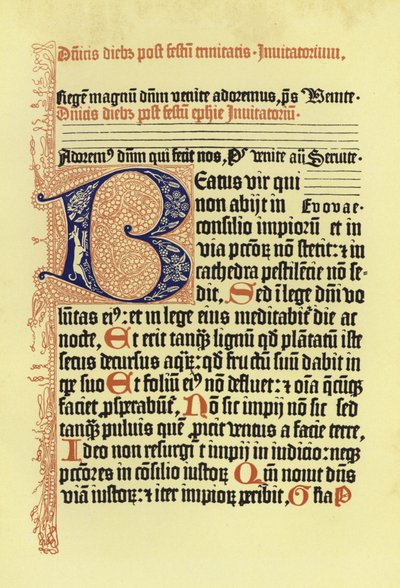 Dn̄icis diebꝫ post festū trinitatis · Inuitatorium,
Regē magnū dn̄m venite adoremus, p̄s Venite ·
Dn̄icis diebꝫ post festū ephie Inuitatoriū ·
Adoremꝰ dn̄m qui fecit nos, Pꝰ venite aū Seruite ·
Beatus vir qui
non abijt in Evovae ·
consilio impiorū et in
via pcc̄oꝝ nō stetit: ⁊ in
cathedra pestilēcie nō se-
dit, Sed ī lege dn̄i vo
lūtas eiꝰ: et in lege eius meditabit᷑ die ac
nocte, Et erit tanqꝫ lignū qd̄ plātatū iste
secus decursus aqꝝ: qd̄ fructū suū dabit in
tp̄e suo Et foliū eiꝰ nō defluet: ⁊ oīa q̄cūqꝫ
faciet ꝓsꝑabūt᷑, Nō sic impij nō sic sed
tanqꝫ puluis quē ꝓicit ventus a facie terre,
Ideo non resurgūt impij in iudicio: neqꝫ
pcc̄ores in cōsilio iustoꝝ Qm̄ nouit dn̄s
viā iustoꝝ: ⁊ iter impioꝝ ꝑibit, Gl̄ia P